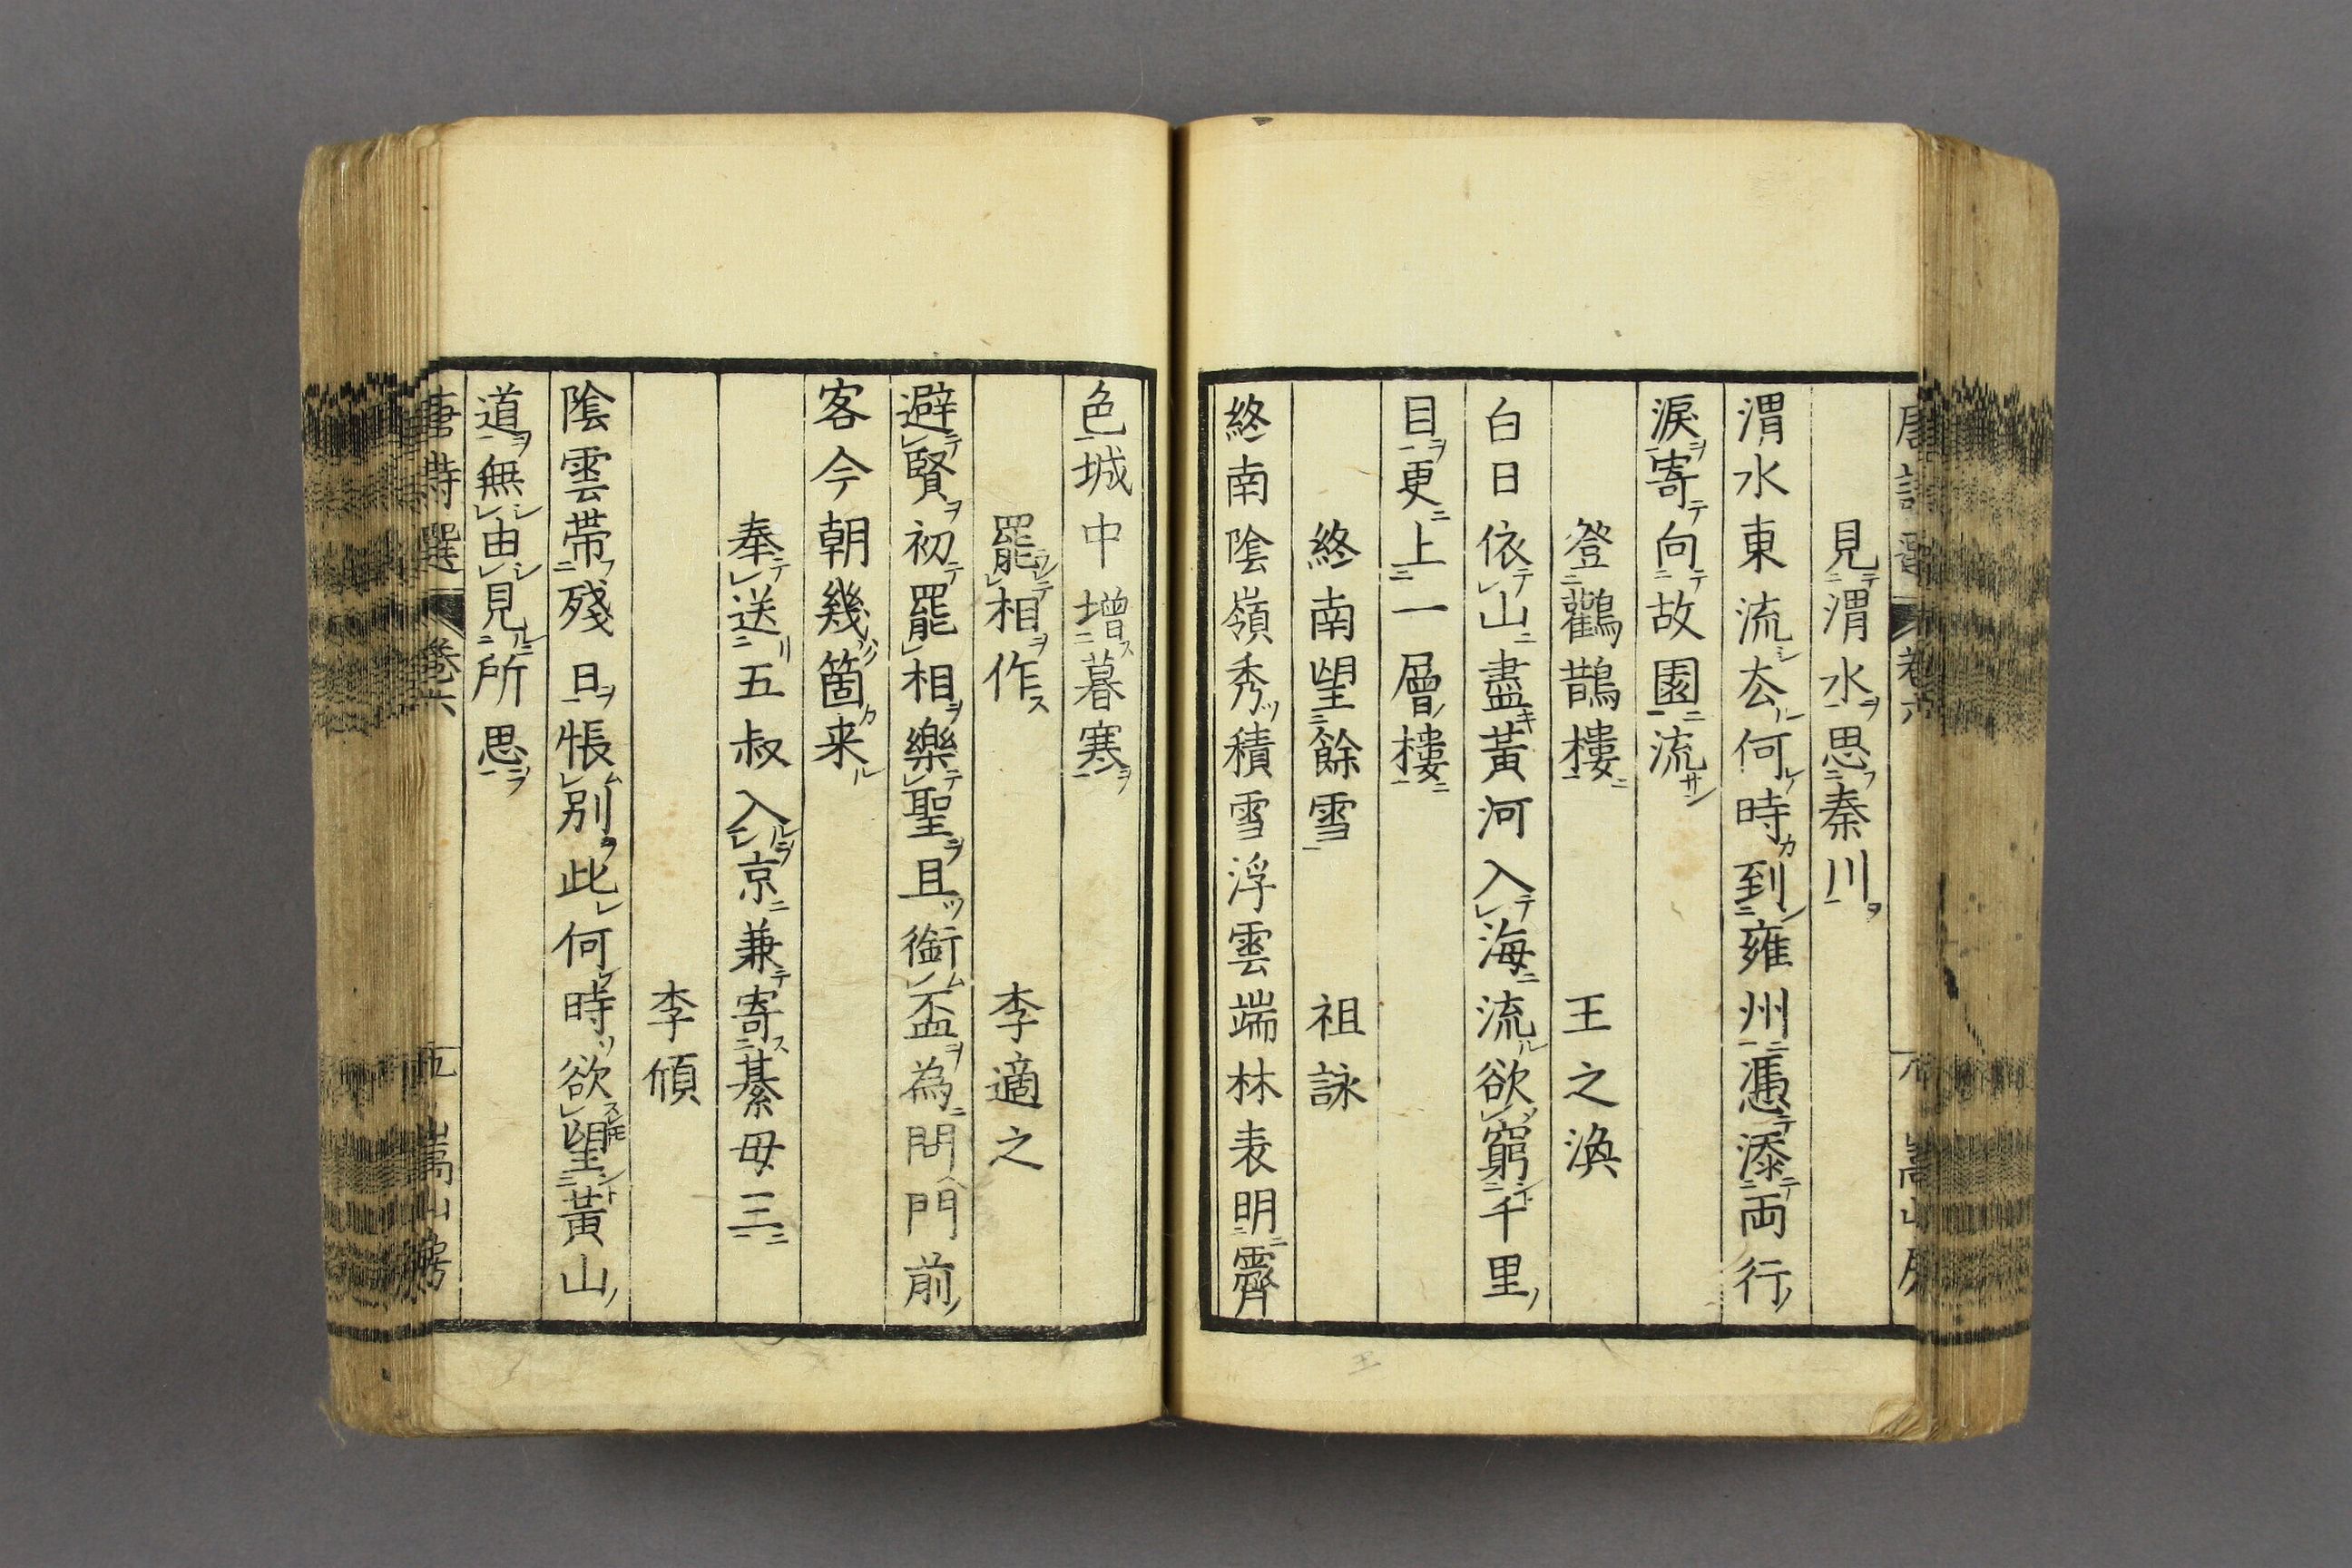 見渭水思秦川
渭水東流去何時到雍州憑添両行
淚寄向故園流
登鸛鵲樓 王之渙
白日依山盡黃河入海流欲窮千里
目更上一層樓
終南望餘雪 祖詠
終南陰嶺秀積雪浮雲端林表明霽
色城中增暮寒
罷相作 李適之
避賢初罷相樂聖且銜盃為問門前
客今朝幾箇来
奉送五叔入京兼寄綦毋三
李頎
陰雲帯殘日悵別此何時欲望黃山
道無由見所思
唐詩選 卷六 五 嵩山房